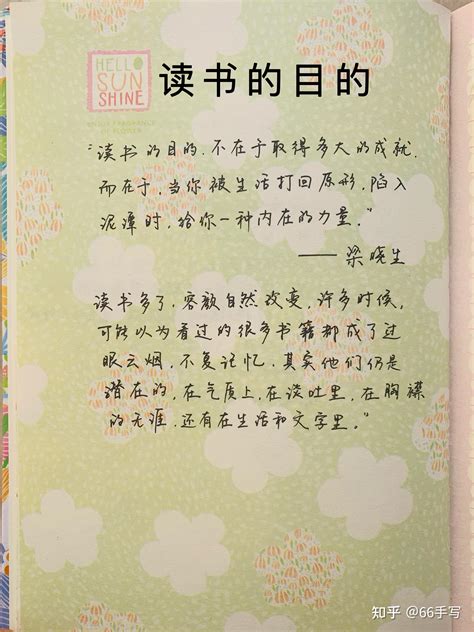 HELLO
SUN
SHINE
读书的目的
"读书的目的,不在于取得多大的成就,
而在于,当你被生活打回原形,陷入
泥潭时,给你一种内在的力量。"
——梁晓生
读书多了,容颜自然改变,许多时候,
可能以为看过的很多书籍都成了过
眼云烟,不复记忆,其实他们仍是
潜在的,在气质上,在谈吐里,在胸襟
的无涯,还有在生活和文字里。"
知乎 @66手写